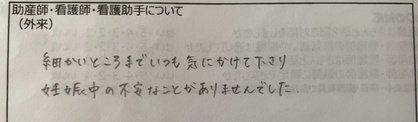 助産師・看護師・看護助手について
(外来)
細かいところまでいつも気にかけて下さり
妊娠中の不安なことがありませんでした